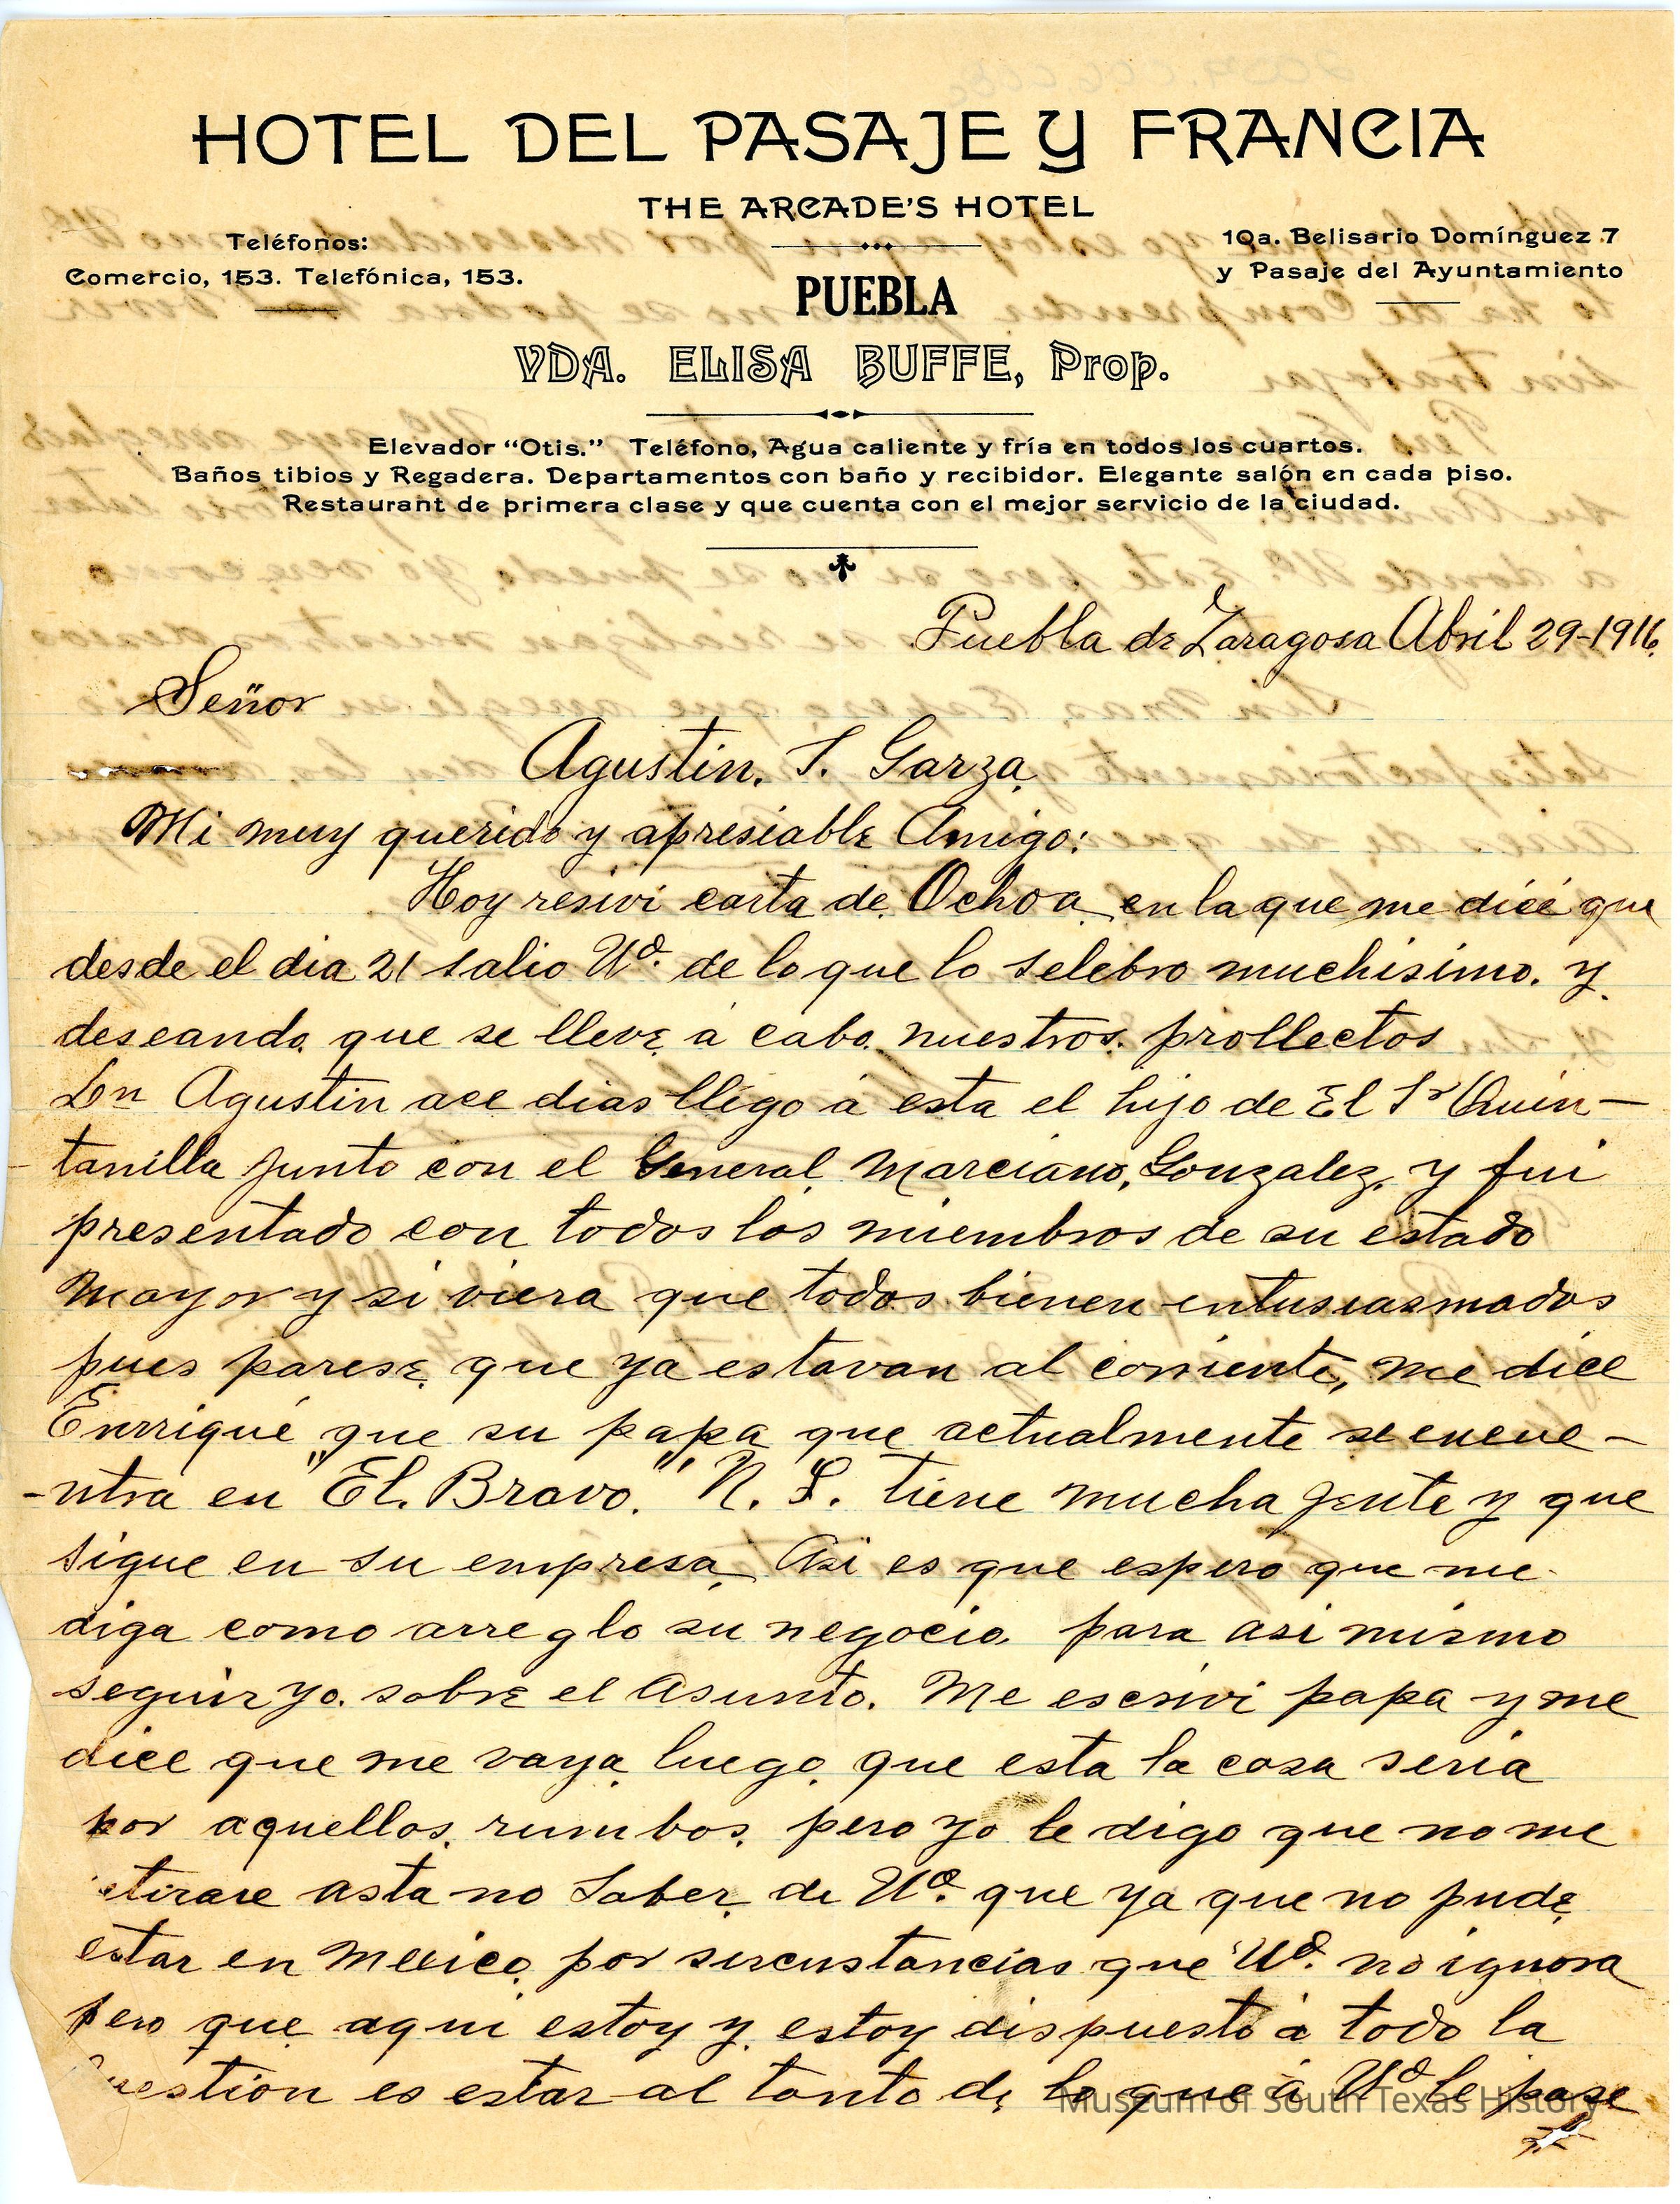 HOTEL DEL PASAJE Y FRANCIA
THE ARCADE'S HOTEL
Teléfonos:
Comercio, 153. Telefónica, 153.
10a. Belisario Domínguez 7
y Pasaje del Ayuntamiento
PUEBLA
VDA. ELISA BUFFE, Prop.
Elevador "Otis." Teléfono, Agua caliente y fría en todos los cuartos.
Baños tibios y Regadera. Departamentos con baño y recibidor. Elegante salón en cada piso.
Restaurant de primera clase y que cuenta con el mejor servicio de la ciudad.
Puebla de Zaragosa Abril 29-1916.
Señor
Agustin. S. Garza.
Mi muy querido y apresiable Amigo:
Hoy resivi carta de Ochoa en la que me dicé que
desde el dia 21 salio Ud. de lo que lo selebro muchisimo. y
deseando que se lleve á cabo nuestros prollectos
Dn Agustin ace dias lligo á esta el hijo de El Sr Quin-
tanilla junto con el General Marciano, Gonzalez, y fui
presentado con todos los miembros de su estado
Mayor y si viera que todos bienen entusiasmados
pues parese que ya estavan al corriente, me dice
Enrriqué que su papa que actualmente se encue-
-ntra en "El. Bravo." N. L. tiene mucha jente y que
sigue en su empresa Asi es que espero que me
diga como arreglo su negocio para asi mismo
seguir yo. sobre el Asunto. Me escrivi papa y me
dice que me vaya luego que esta la cosa seria
por aquellos rumbos, pero yo le digo que no me
etirare asta no Saber de Ud. que ya que no pude
estar en Mexico por sircustancias que Ud. no ignora
pero que aqui estoy y estoy dispuesto á todo la
uestion es estar al tanto de lo que á Ud le pase
Museum of South Texas History